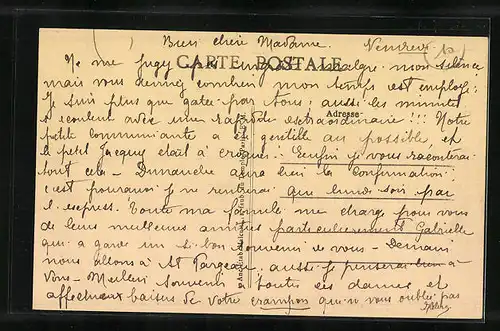 Bien chère Madame. Vendredi
CARTE POSTALE
Ne me jugez pas ingrate malgré mon silence
mais vous devinez combien mon temps est employé.
Je suis plus que gâtée par tous; aussi les minutes
s'écoulent avec une rapidité extraordinaire!!! Notre
Adresse
petite communiante a été gentille au possible, et
le petit Jacques était à croquer. Enfin je vous raconterai
tout cela - Dimanche aura lieu la Confirmation
c'est pourquoi je ne rentrerai que lundi soir par
l'express. Toute ma famille me charge pour vous
de leurs meilleures amitiés particulièrement Gabrielle
qui a gardé un si bon souvenir de vous - Demain
nous allons à St Fargeau aussi je penserai bien à
vous - Meilleur souvenir à toutes ces dames et
affectueux baisers de votre crampon qui ne vous oublie pas